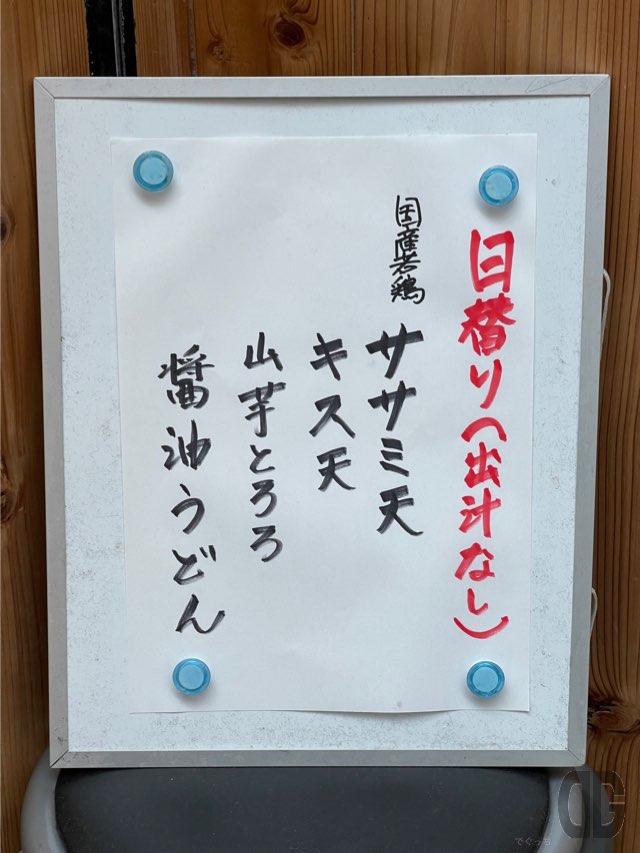 日替り(出汁なし)
国産若鶏
ササミ天
キス天
山芋とろろ
醤油うどん